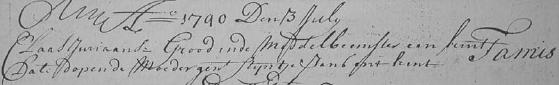 Ao 1790 Den 3 July
Claas Juriaansz Grood inde Middelbeemster een kint Tamis
Dat doopende Moeder gen Trijntje Jans het kint